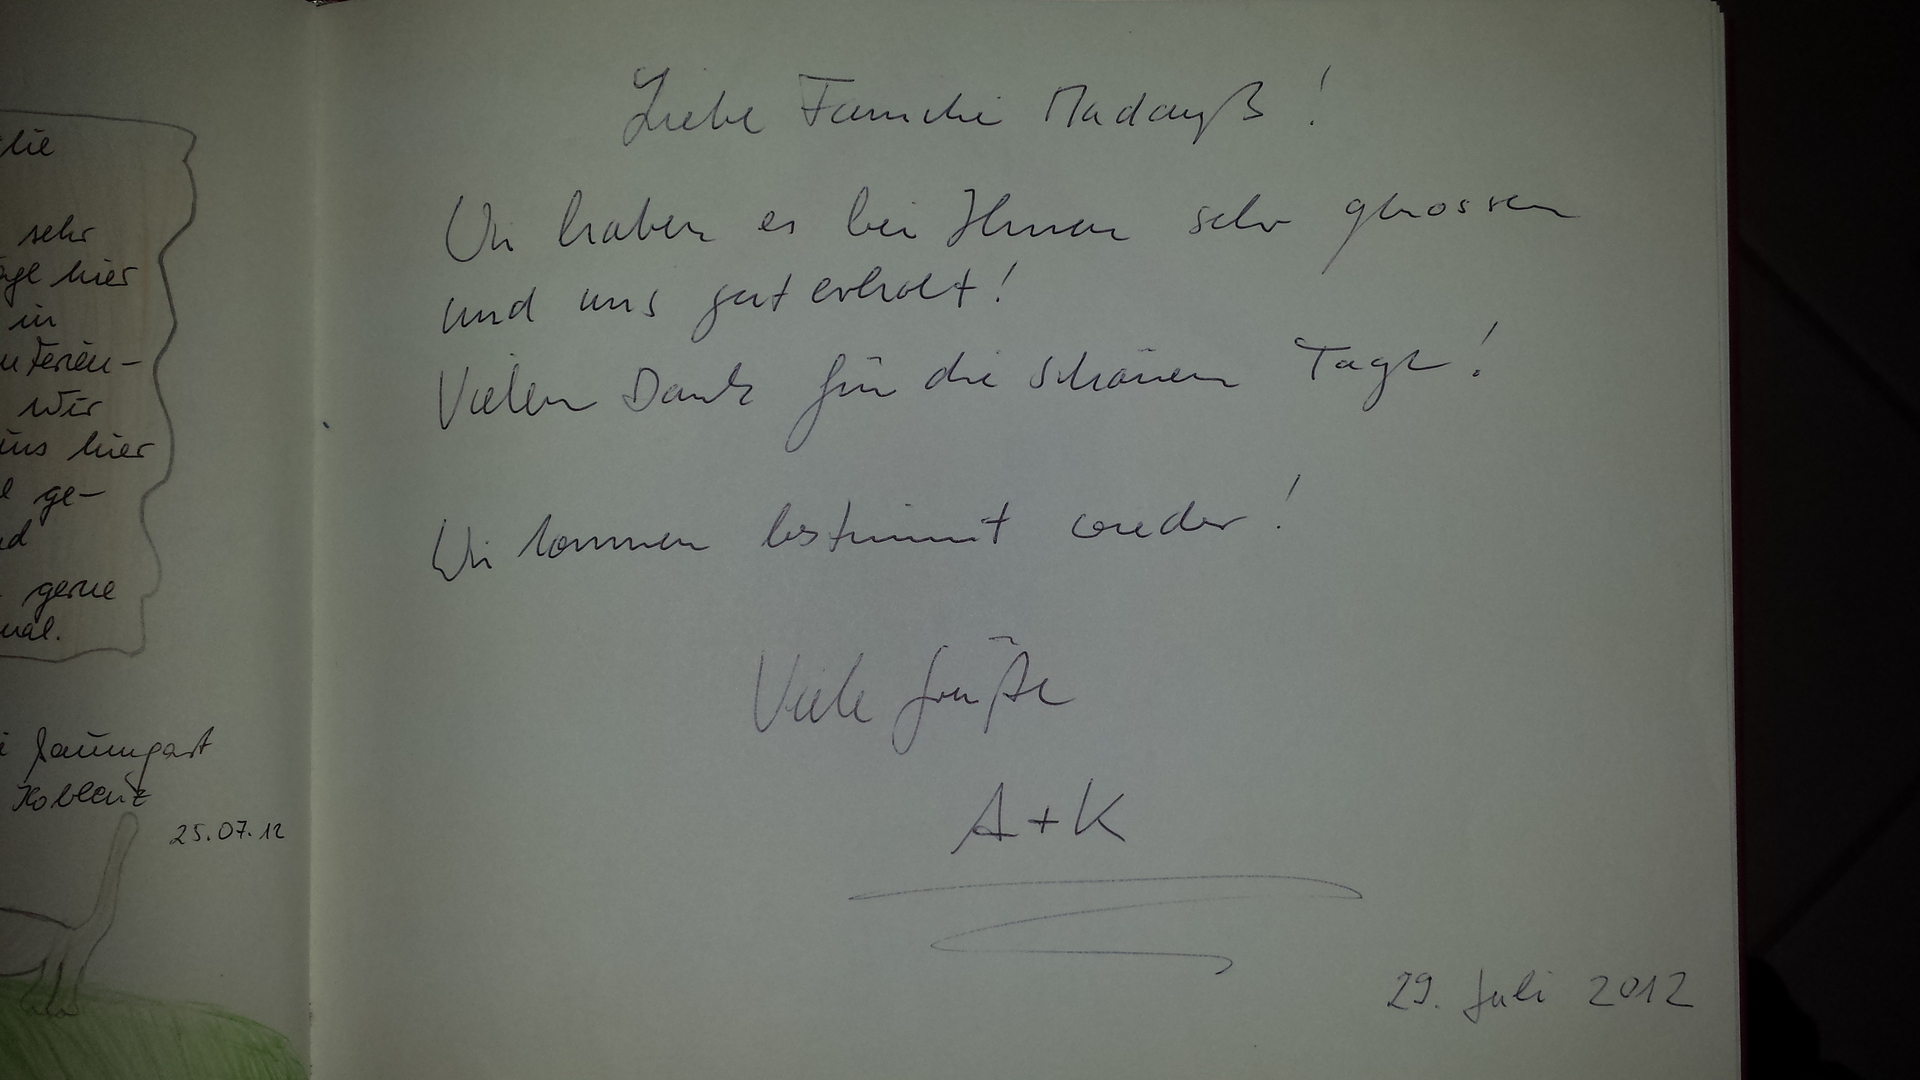 lie
sehr
hier
in
Ferien-
wir
uns hier
ge-
gerne
mal.
Baumgart
Koblenz
25.07.12
Liebe Familie Madauß!
Wir haben es bei Ihnen sehr genossen
und uns gut erholt!
Vielen Dank für die schönen Tage!
Wir kommen bestimmt wieder!
Viele Grüße
A+K
29. Juli 2012